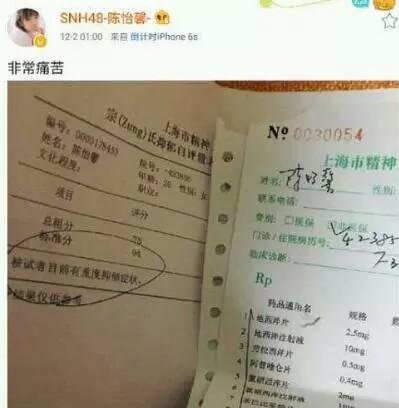 SNH48-陈怡馨-
12-2 01:00 来自 倒计时iPhone 6s
非常痛苦
上海市精神
宗(Zung)氏抑郁自评量表
编号: 0000178453
姓名: 陈怡馨
文化程度:
年龄: 20 性别: 女
职业:
项目 评分
总粗分 75
标准分 94
被试者目前有重度抑郁症状。
Nº 0030054
上海市精神
姓名: 陈怡馨 性别:
联系电话:
费别: □医保 非医保
门诊/住院病历号: 42385
临床诊断:
Rp
药品通用名 规格
1 地西泮片 2.5mg
2 地西泮注射液 10mg
3 劳拉西泮片 0.5mg
4 阿普唑仑片 0.4mg
5 氯硝西泮片 2mg